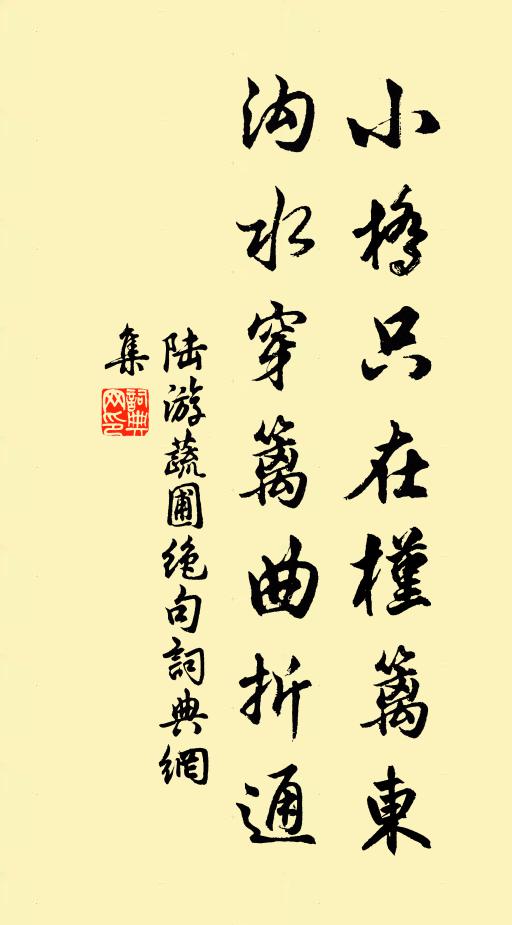 小橋只在槿籬東
沟水穿籬曲折通
陆游蔬圃绝句詞典網
集
詞典
网印